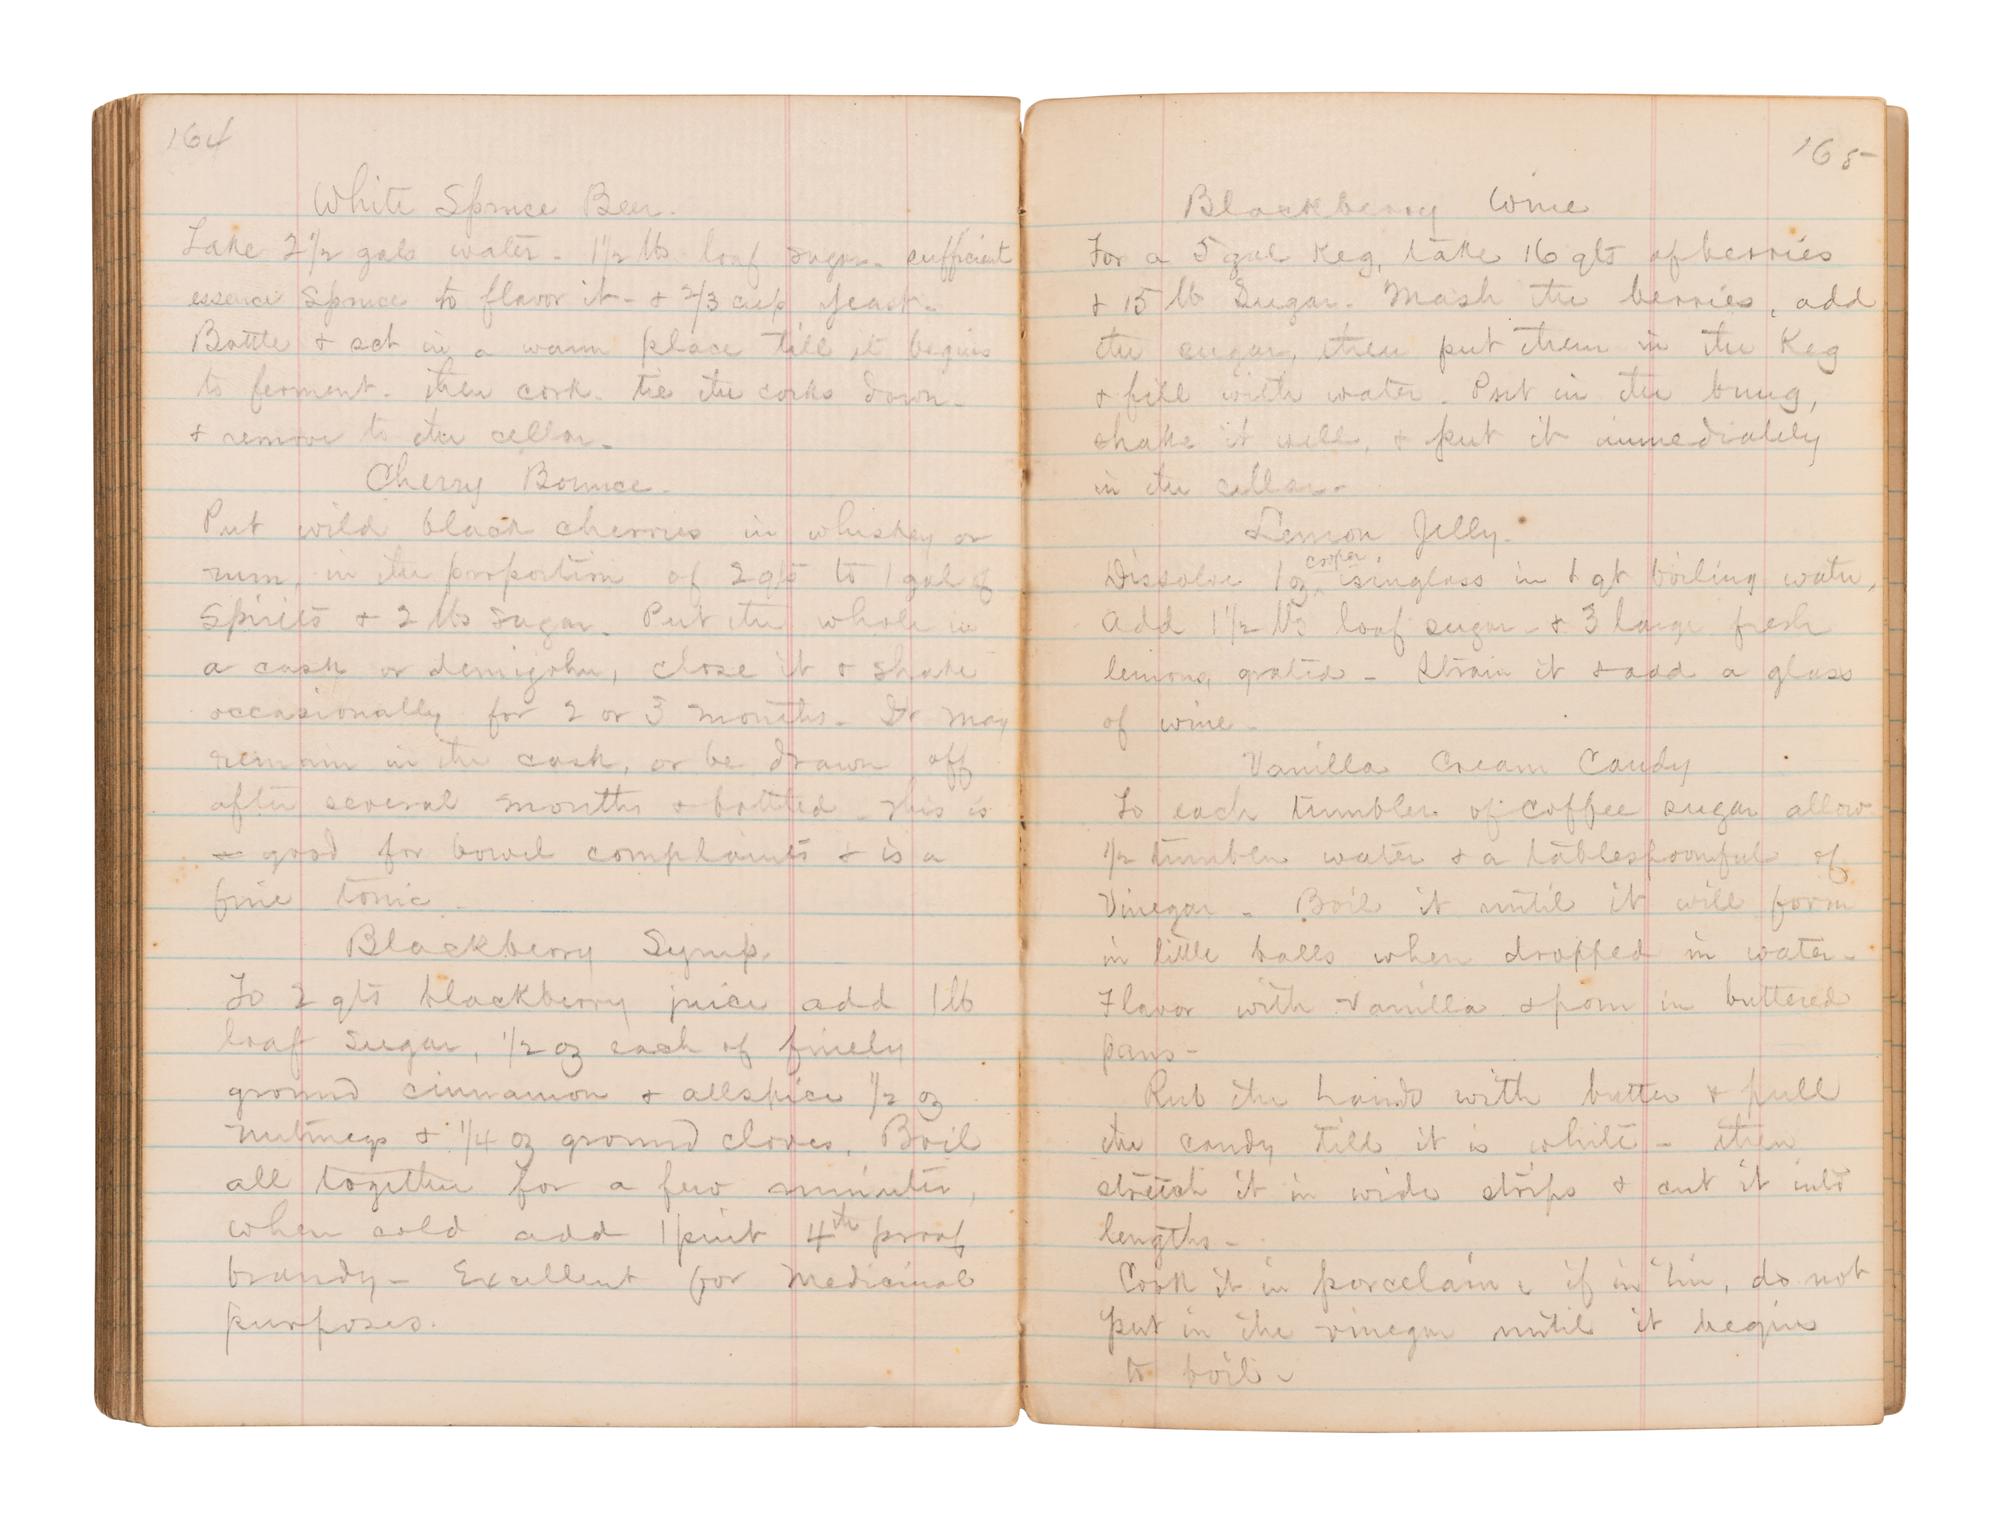 164
White Spruce Beer.
Take 2 1/2 gals water - 1 1/2 lbs loaf sugar - sufficient
essence Spruce to flavor it - & 2/3 cup yeast -
Bottle & set in a warm place till it begins
to ferment - then cork - tie the corks down -
& remove to the cellar -
Cherry Bounce -
Put wild black cherries in whiskey or
rum, in the proportion of 2 qts to 1 gal of
Spirits & 2 lbs sugar. Put the whole in
a cask or demijohn, close it & shake
occasionally for 2 or 3 months - It may
remain in the cask, or be drawn off
after several months & bottled - This is
good for bowel complaints & is a
fine tonic -
Blackberry Syrup.
To 2 qts blackberry juice add 1 lb
loaf sugar, 1/2 oz each of finely
ground cinnamon & allspice 1/2 oz
nutmegs & 1/4 oz ground cloves. Boil
all together for a few minutes,
when cold add 1 pint 4th proof
brandy - Excellent for medicinal
purposes.
165
Blackberry Wine
For a 5 gal Keg, take 16 qts of berries
& 15 lb Sugar - Mash the berries, add
the sugar, then put them in the Keg
& fill with water - Put in the bung,
shake it well, & put it immediately
in the cellar -
Lemon Jelly -
Dissolve 1 oz cooper isinglass in 1 qt boiling water,
Add 1 1/2 lbs loaf sugar - & 3 large fresh
lemons, grated - Strain it & add a glass
of wine -
Vanilla Cream Candy
To each tumbler of coffee sugar allow
1/2 tumbler water & a tablespoonful of
Vinegar - Boil it until it will form
in little balls when dropped in water -
Flavor with Vanilla & pour in buttered
pans -
Rub the hands with butter & pull
the candy till it is white - then
stretch it in wide strips & cut it into
lengths -
Cook it in porcelain, if in tin, do not
put in the vinegar until it begins
to boil -